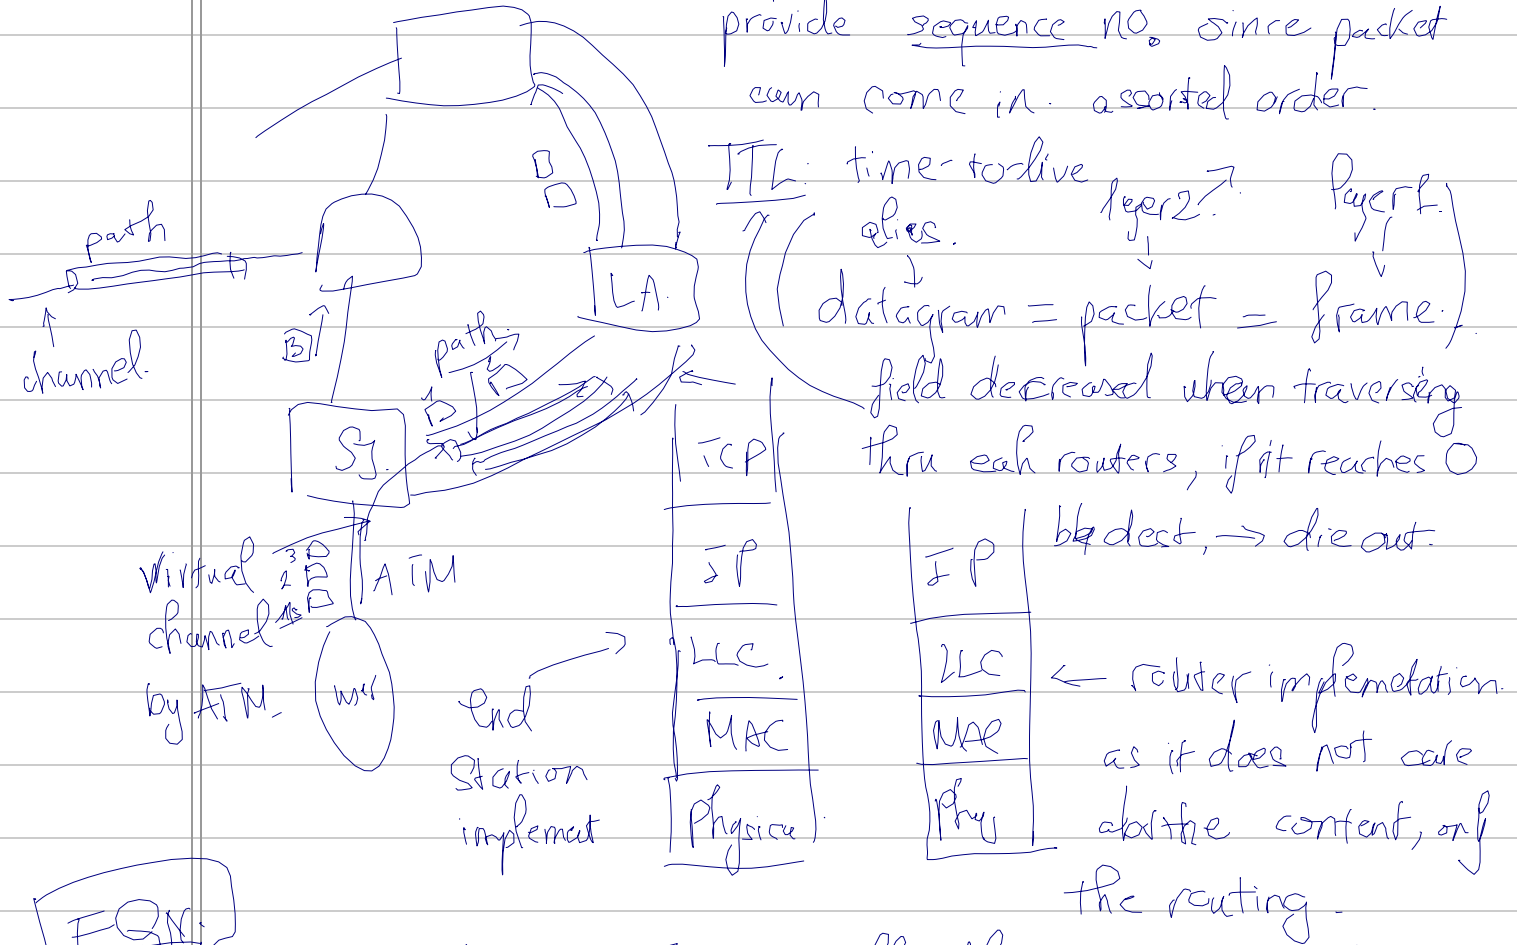 provide sequence no. since packet
can come in assorted order.
TTL: time-to-live
alias. layer2? layer1.
datagram = packet = frame.
field decreased when traversing
thru eah routers, if it reaches 0
b4 dest, → die out.
path
channel.
B
LA.
path.
SJ.
Virtual
channel
by ATM
3
2
1
ATM
user
TCP
IP
LLC
MAC
Physica
End
Station
implement
IP
LLC
MAC
Phy
← router implemetation.
as it does not care
abt the content, only
the routing.
FQN.